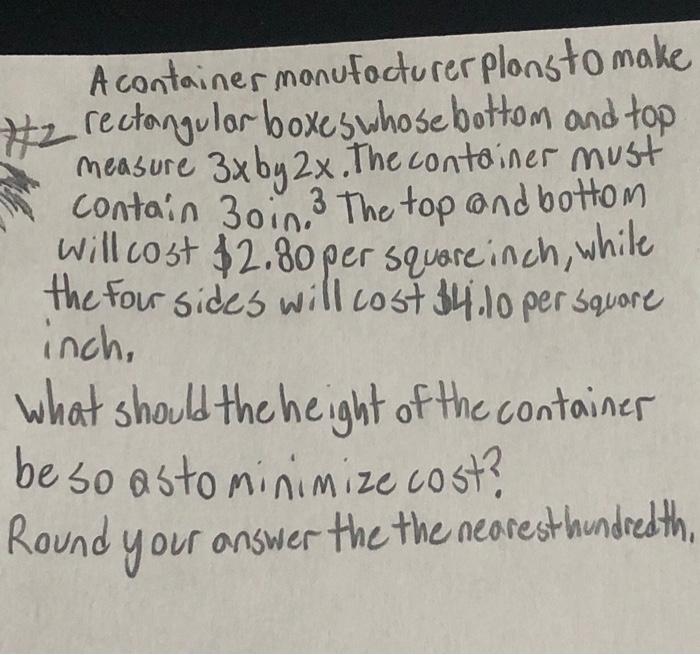 A container manufacturer plans to make
#2 rectangular boxes whose bottom and top
measure 3x by 2x. The container must
contain 30in.³ The top and bottom
will cost $2.80 per square inch, while
the four sides will cost $4.10 per square
inch.
What should the height of the container
be so as to minimize cost?
Round your answer the the nearest hundredth.